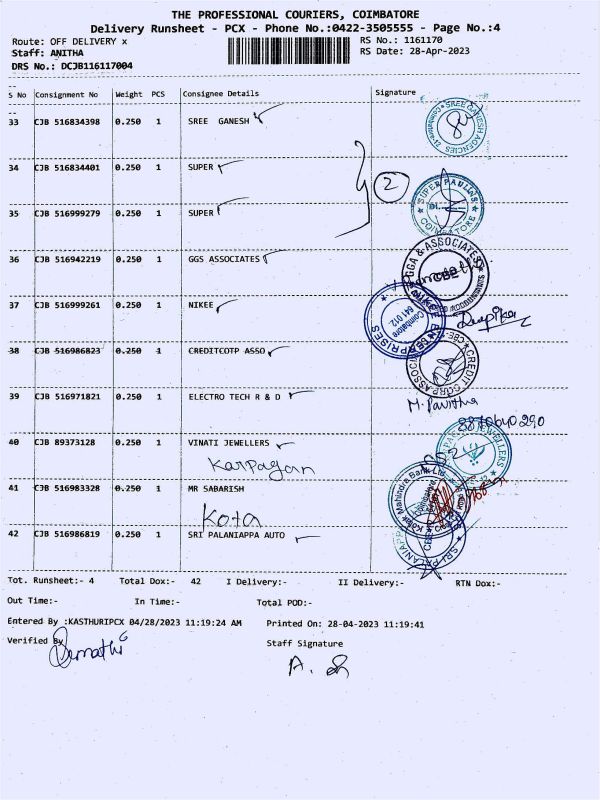 THE PROFESSIONAL COURIERS, COIMBATORE
Delivery Runsheet - PCX - Phone No.:0422-3505555 - Page No.:4
Route: OFF DELIVERY x RS No.: 1161170
Staff: ANITHA RS Date: 28-Apr-2023
DRS No.: DCJB116117004
S No Consignment No Weight PCS Consignee Details Signature
33 CJB 516834398 0.250 1 SREE GANESH
SREE GANESH AGENCIES
34 CJB 516834401 0.250 1 SUPER
2
SUPER PAULINS COIMBATORE
35 CJB 516999279 0.250 1 SUPER
36 CJB 516942219 0.250 1 GGS ASSOCIATES
GGA & ASSOCIATES CBE ACCOUNTANTS
37 CJB 516999261 0.250 1 NIKEE
NIKEE ENTERPRISES Coimbatore 641 012
Deepika
38 CJB 516986823 0.250 1 CREDITCOTP ASSO
CREDIT CORP ASSOCIATES CBE
39 CJB 516971821 0.250 1 ELECTRO TECH R & D
M. Pavitha
40 CJB 89373128 0.250 1 VINATI JEWELLERS
Karpagan
JEWELLERS
41 CJB 516983328 0.250 1 MR SABARISH
Kota
Kotak Mahindra Bank Ltd
42 CJB 516986819 0.250 1 SRI PALANIAPPA AUTO
SRI PALANIAPPA CBE
Tot. Runsheet:- 4 Total Dox:- 42 I Delivery:- II Delivery:- RTN Dox:-
Out Time:- In Time:- Total POD:-
Entered By :KASTHURIPCX 04/28/2023 11:19:24 AM Printed On: 28-04-2023 11:19:41
Verified By Staff Signature